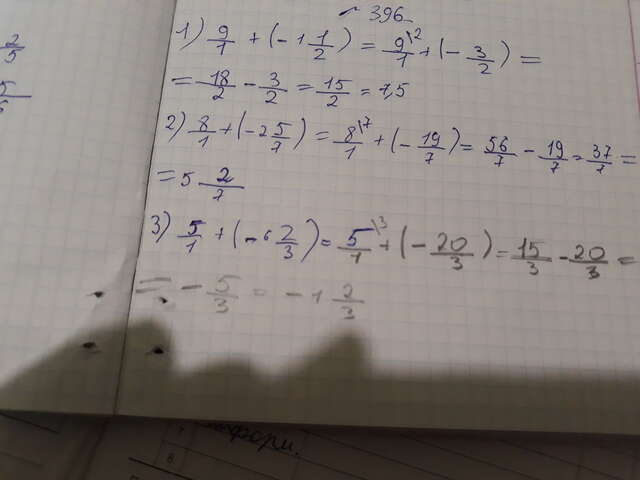 № 396
2/5
1) 9/1 + (- 1 1/2) = 9\2/1 + (- 3/2) =
= 18/2 - 3/2 = 15/2 = 7,5
2) 8/1 + (-2 5/7) = 8\7/1 + (- 19/7) = 56/7 - 19/7 = 37/7 =
= 5 2/7
3) 5/1 + (- 6 2/3) = 5\3/1 + (- 20/3) = 15/3 - 20/3 =
= - 5/3 = - 1 2/3
7
8